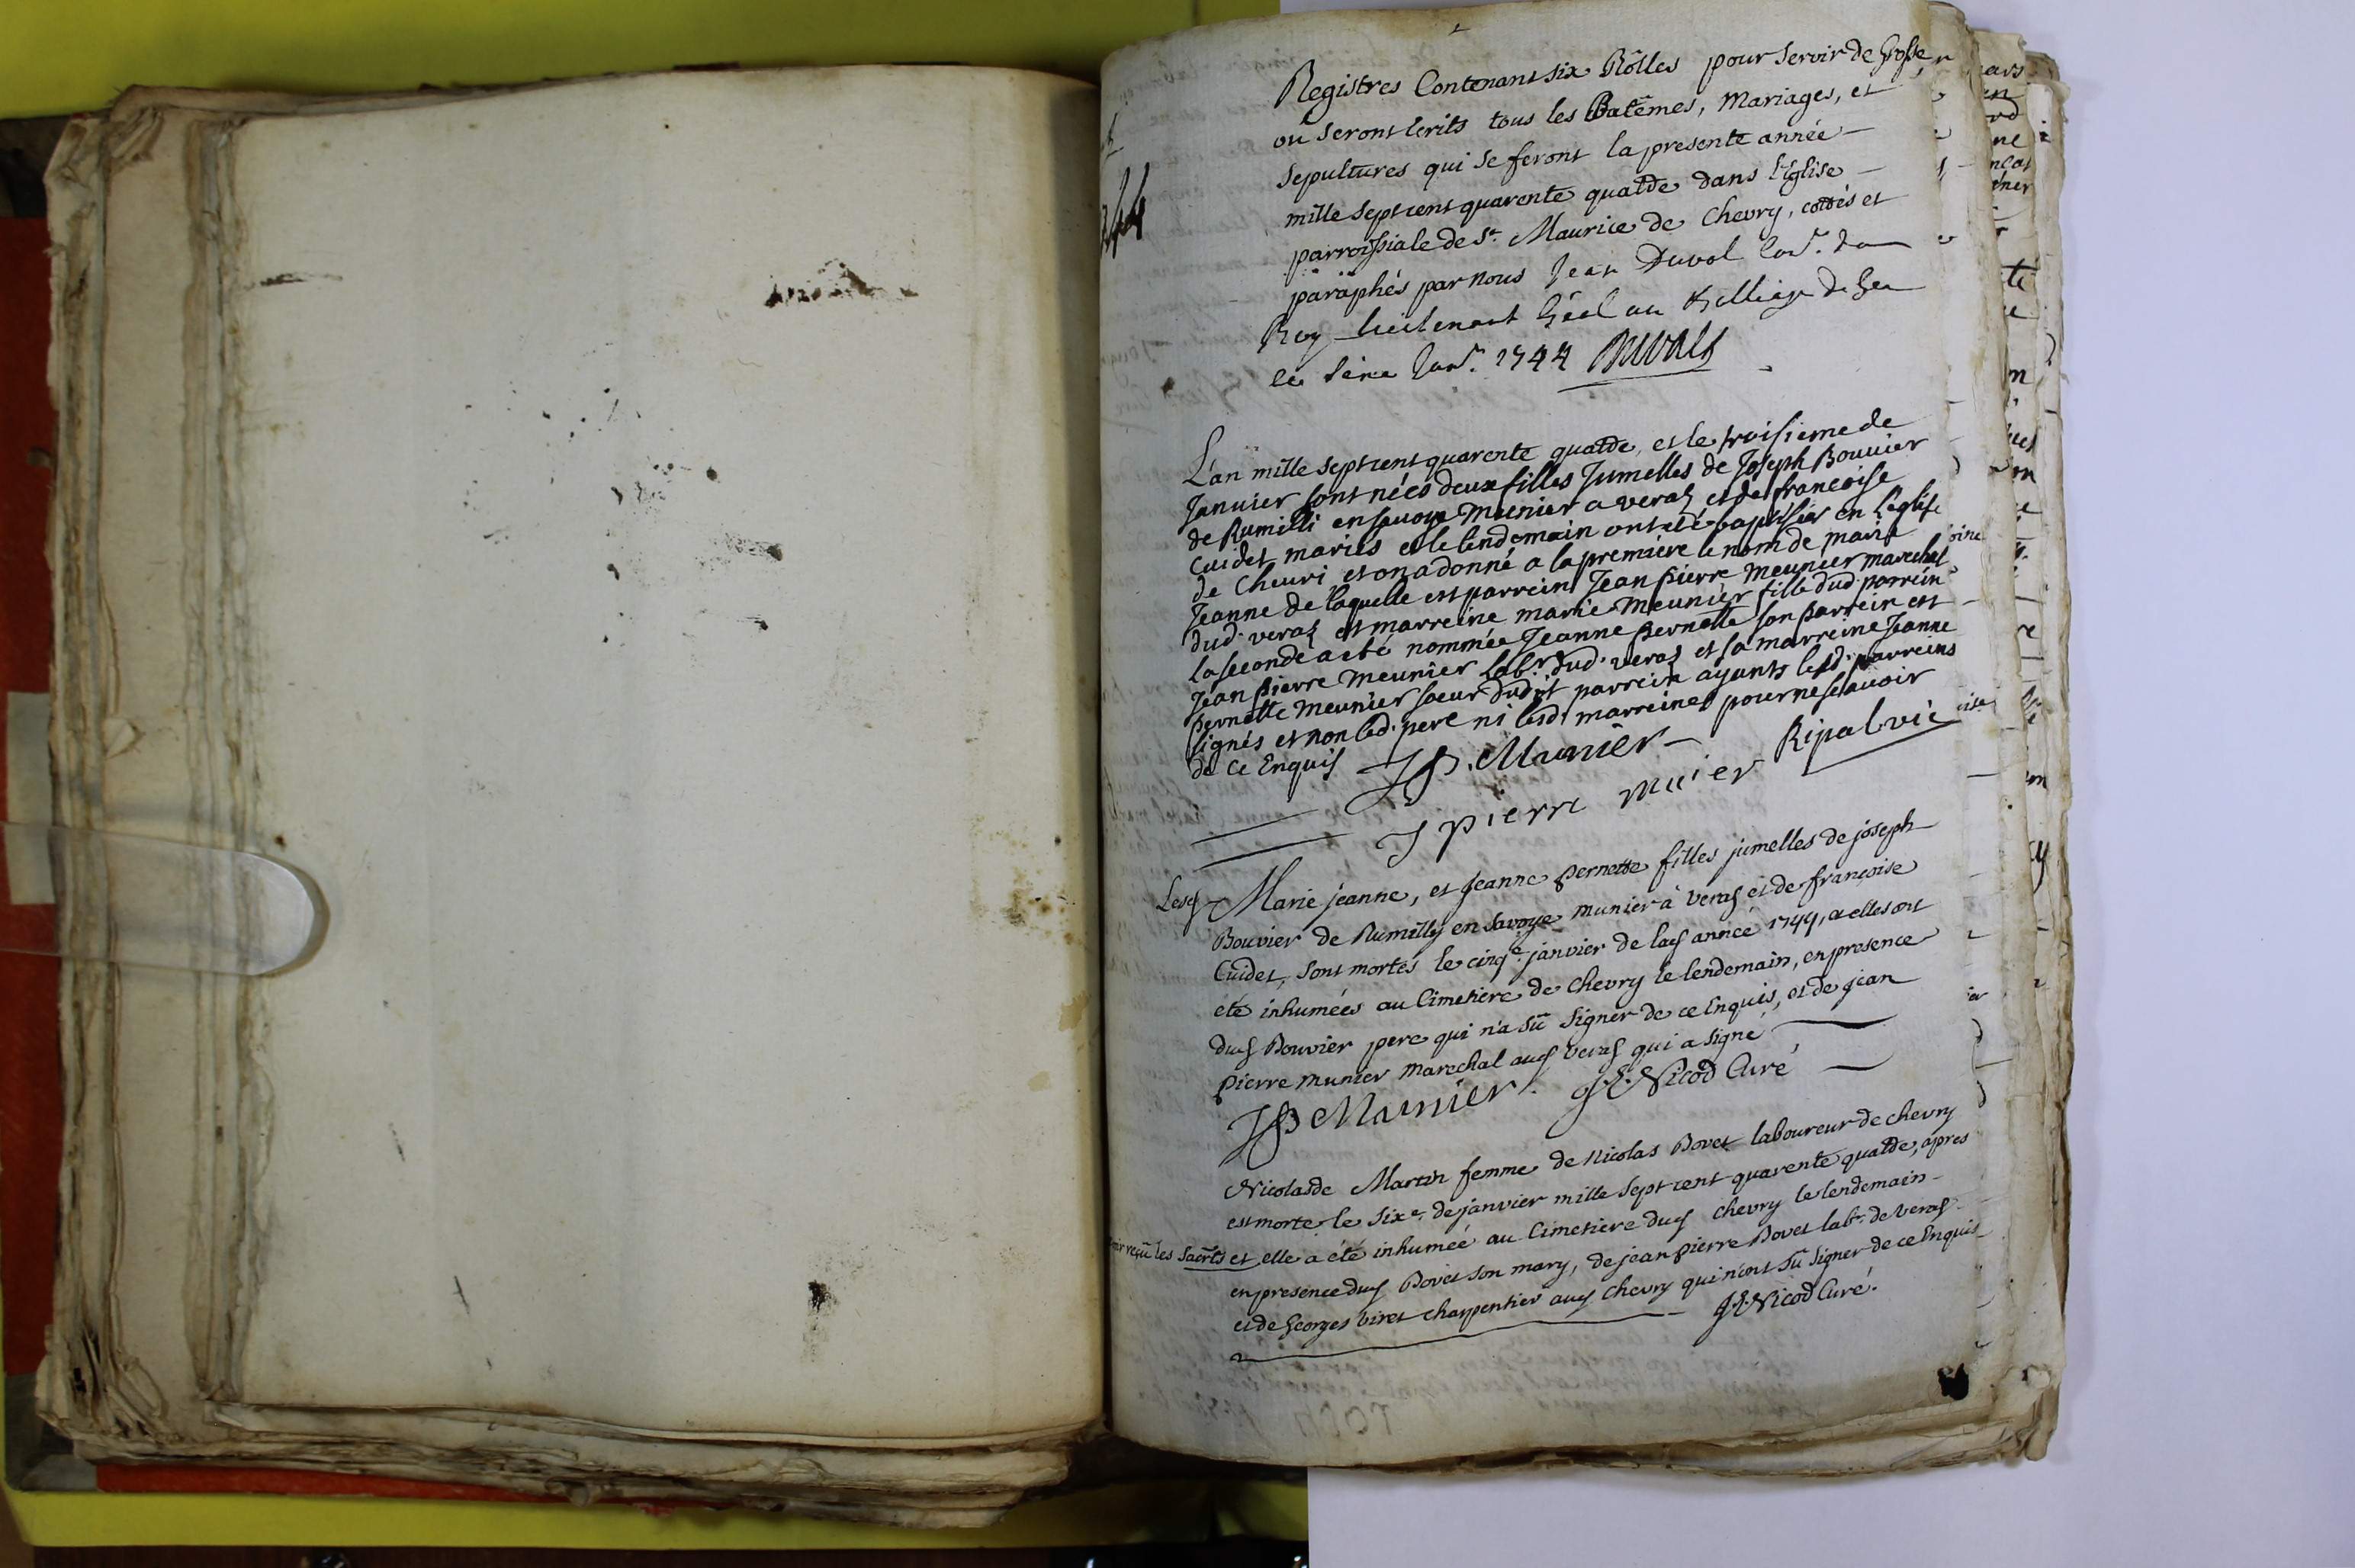 Registres Contenant six Rôlles pour servir de Grosse
ou seront écrits tous les Batêmes, Mariages, et
sepultures qui se feront la presente année
mille sept cent quarente quatde dans l'Eglise
parroissiale de St. Maurice de Chevry, cottés et
paraphés par nous Jean Duval Con.r du
Roy Lieutenant Géél au Balliage de Gex
le Janv.r 1744 Duvals
L'an mille sept cent quarente quatde, et le troisieme de
Janvier sont nées deux filles Jumelles de Joseph Bouvier
de Rumilli en savoye Meunier a veraz et de francoise
Cuidet mariés et le lendemain ont eté baptisées en l'eglise
de Cheuri et on a donné a la premiere le nom de marie
Jeanne de laquelle est parrein Jean pierre Meunier marechal
dud. veraz et marreine marie Meunier fille dud. parrein
la seconde a eté nommée Jeanne pernette son parrein est
Jean pierre Meunier lab.r dud. veraz et sa marreine Jeanne
pernette Meunier soeur dudit parrein ayants lesd. parreins
signés et non led. pere ni lesd. marreines pour ne sçavoir
de ce Enquis JP. Munier Ripal vic
J pierre muier
Marie jeanne, et jeanne pernette filles jumelles de joseph
Bouvier de Rumilly en Savoye munier à veraz et de françoise
Cuidet, sont mortes le cinq.e janvier de lad année 1744, et elles ont
été inhumées au Cimetiere de Chevry le lendemain, en presence
dud Bouvier pere qui n'a sû signer de ce Enquis, et de jean
pierre munier marechal aud veraz qui a signé
JP Mumier. J.E. Nicod Curé
Nicolarde Martin femme de Nicolas Bovet laboureur de chevry
est morte le six.e de janvier mille sept cent quarente quatde, apres
avoir reçû les Sacrts et elle a été inhumée au Cimetiere dud chevry le lendemain
en presence dud Bovet son mary, de jean pierre Bovet lab.r de veraz
et de Georges viret charpentier aud Chevry qui n'ont sû signer de ce Enquis
J.E. Nicod Curé.